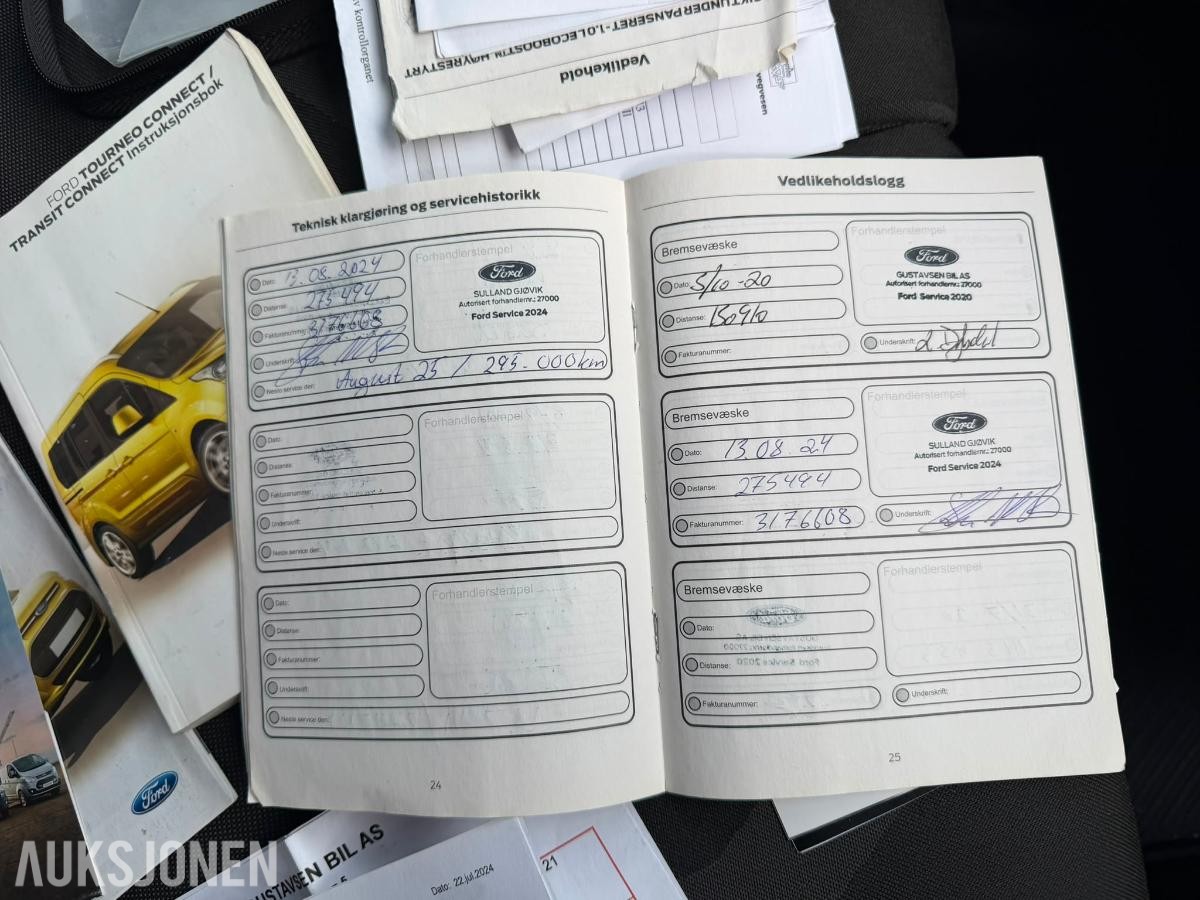 FORD TOURNEO CONNECT /
TRANSIT CONNECT Instruksjonsbok
av kontrollorganet
Vedlikehold
vegvesen
Teknisk klargjøring og servicehistorikk
Dato: 13.08.2024
Distanse: 275494
Fakturanummer: 3176608
Underskrift:
Neste service den: August 25 / 295.000km
Forhandlerstempel
Ford
SULLAND GJØVIK
Autorisert forhandlernr.: 27000
Ford Service 2024
Dato:
Distanse:
Fakturanummer:
Underskrift:
Neste service den:
Forhandlerstempel
Dato:
Distanse:
Fakturanummer:
Underskrift:
Neste service den:
Forhandlerstempel
24
Vedlikeholdslogg
Bremsevæske
Dato: 5/10-20
Distanse: 150910
Fakturanummer:
Forhandlerstempel
Ford
GUSTAVSEN BIL AS
Autorisert forhandlernr.: 27000
Ford Service 2020
Underskrift:
Bremsevæske
Dato: 13.08.24
Distanse: 275494
Fakturanummer: 3176608
Forhandlerstempel
Ford
SULLAND GJØVIK
Autorisert forhandlernr.: 27000
Ford Service 2024
Underskrift:
Bremsevæske
Dato:
Distanse:
Fakturanummer:
Forhandlerstempel
Underskrift:
25
Ford
GUSTAVSEN BIL AS
Dato: 22.jul.2024
21
AUKSJONEN